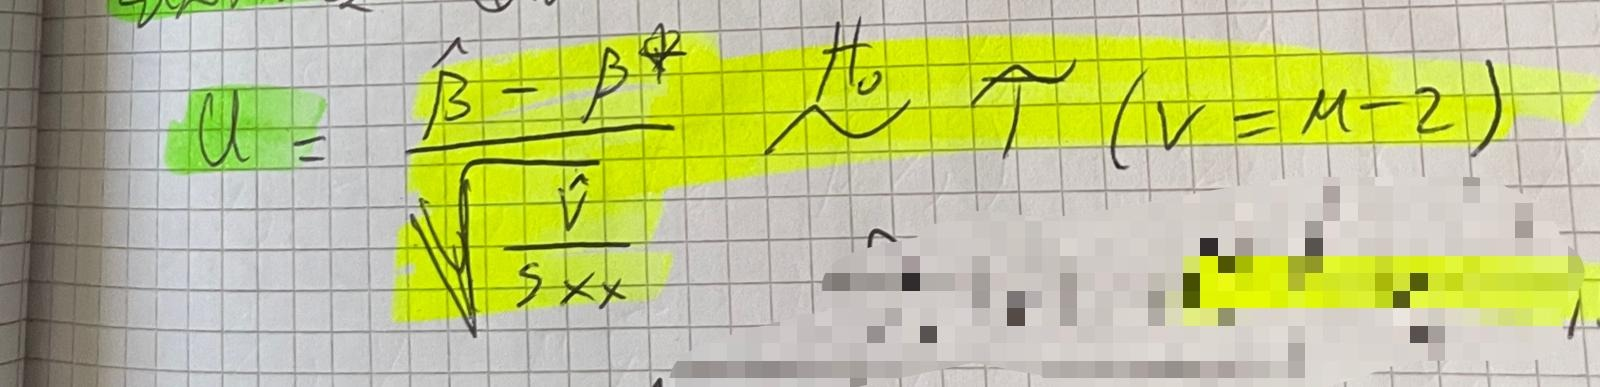 U = (β̂ - β*) / √(V̂ / Sxx) ~ᴴ⁰ T (ν = n - 2)